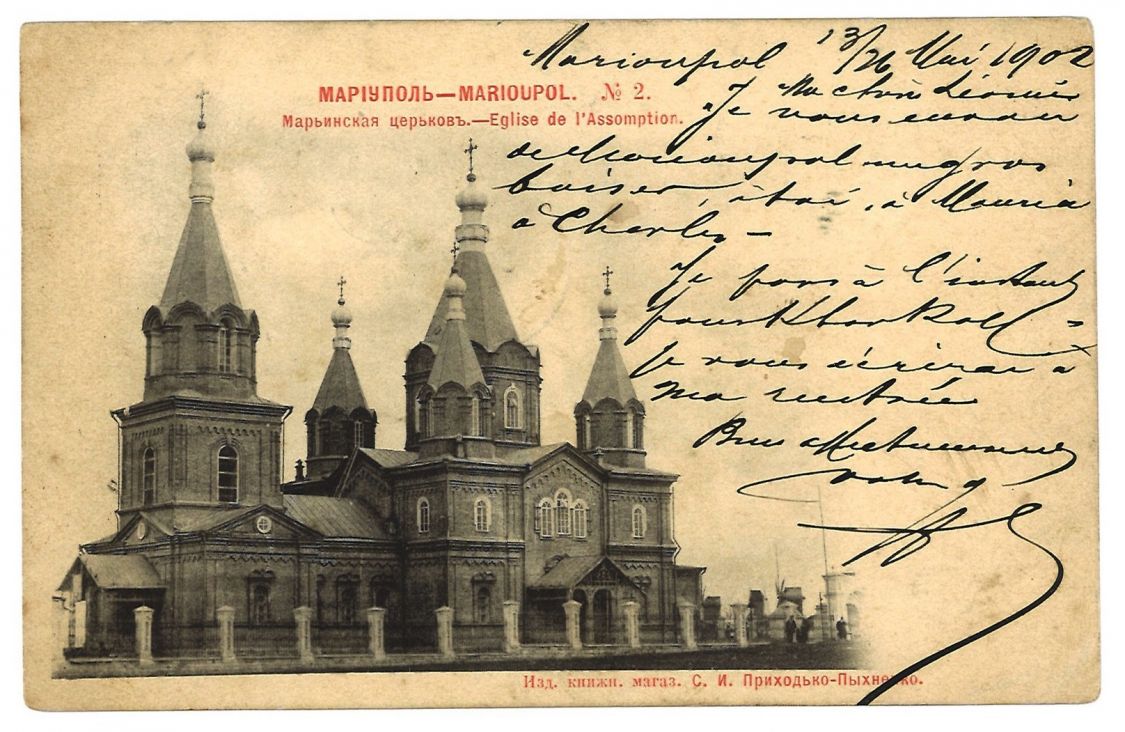 МАРІУПОЛЬ—MARIOUPOL. № 2.
Марьинская церьковъ.—Eglise de l'Assomption.
Marioupol 13/26 Mai 1902
Ma chère
Je vous envoie
de Marioupol un gros
baiser, à toi, à Maria
à Charles —
Je pars à l'instant
pour Kharkoff —
Je vous écrirai à
ma rentrée
Bien affectueusement
Изд. книжн. магаз. С. И. Приходько-Пыхненко.